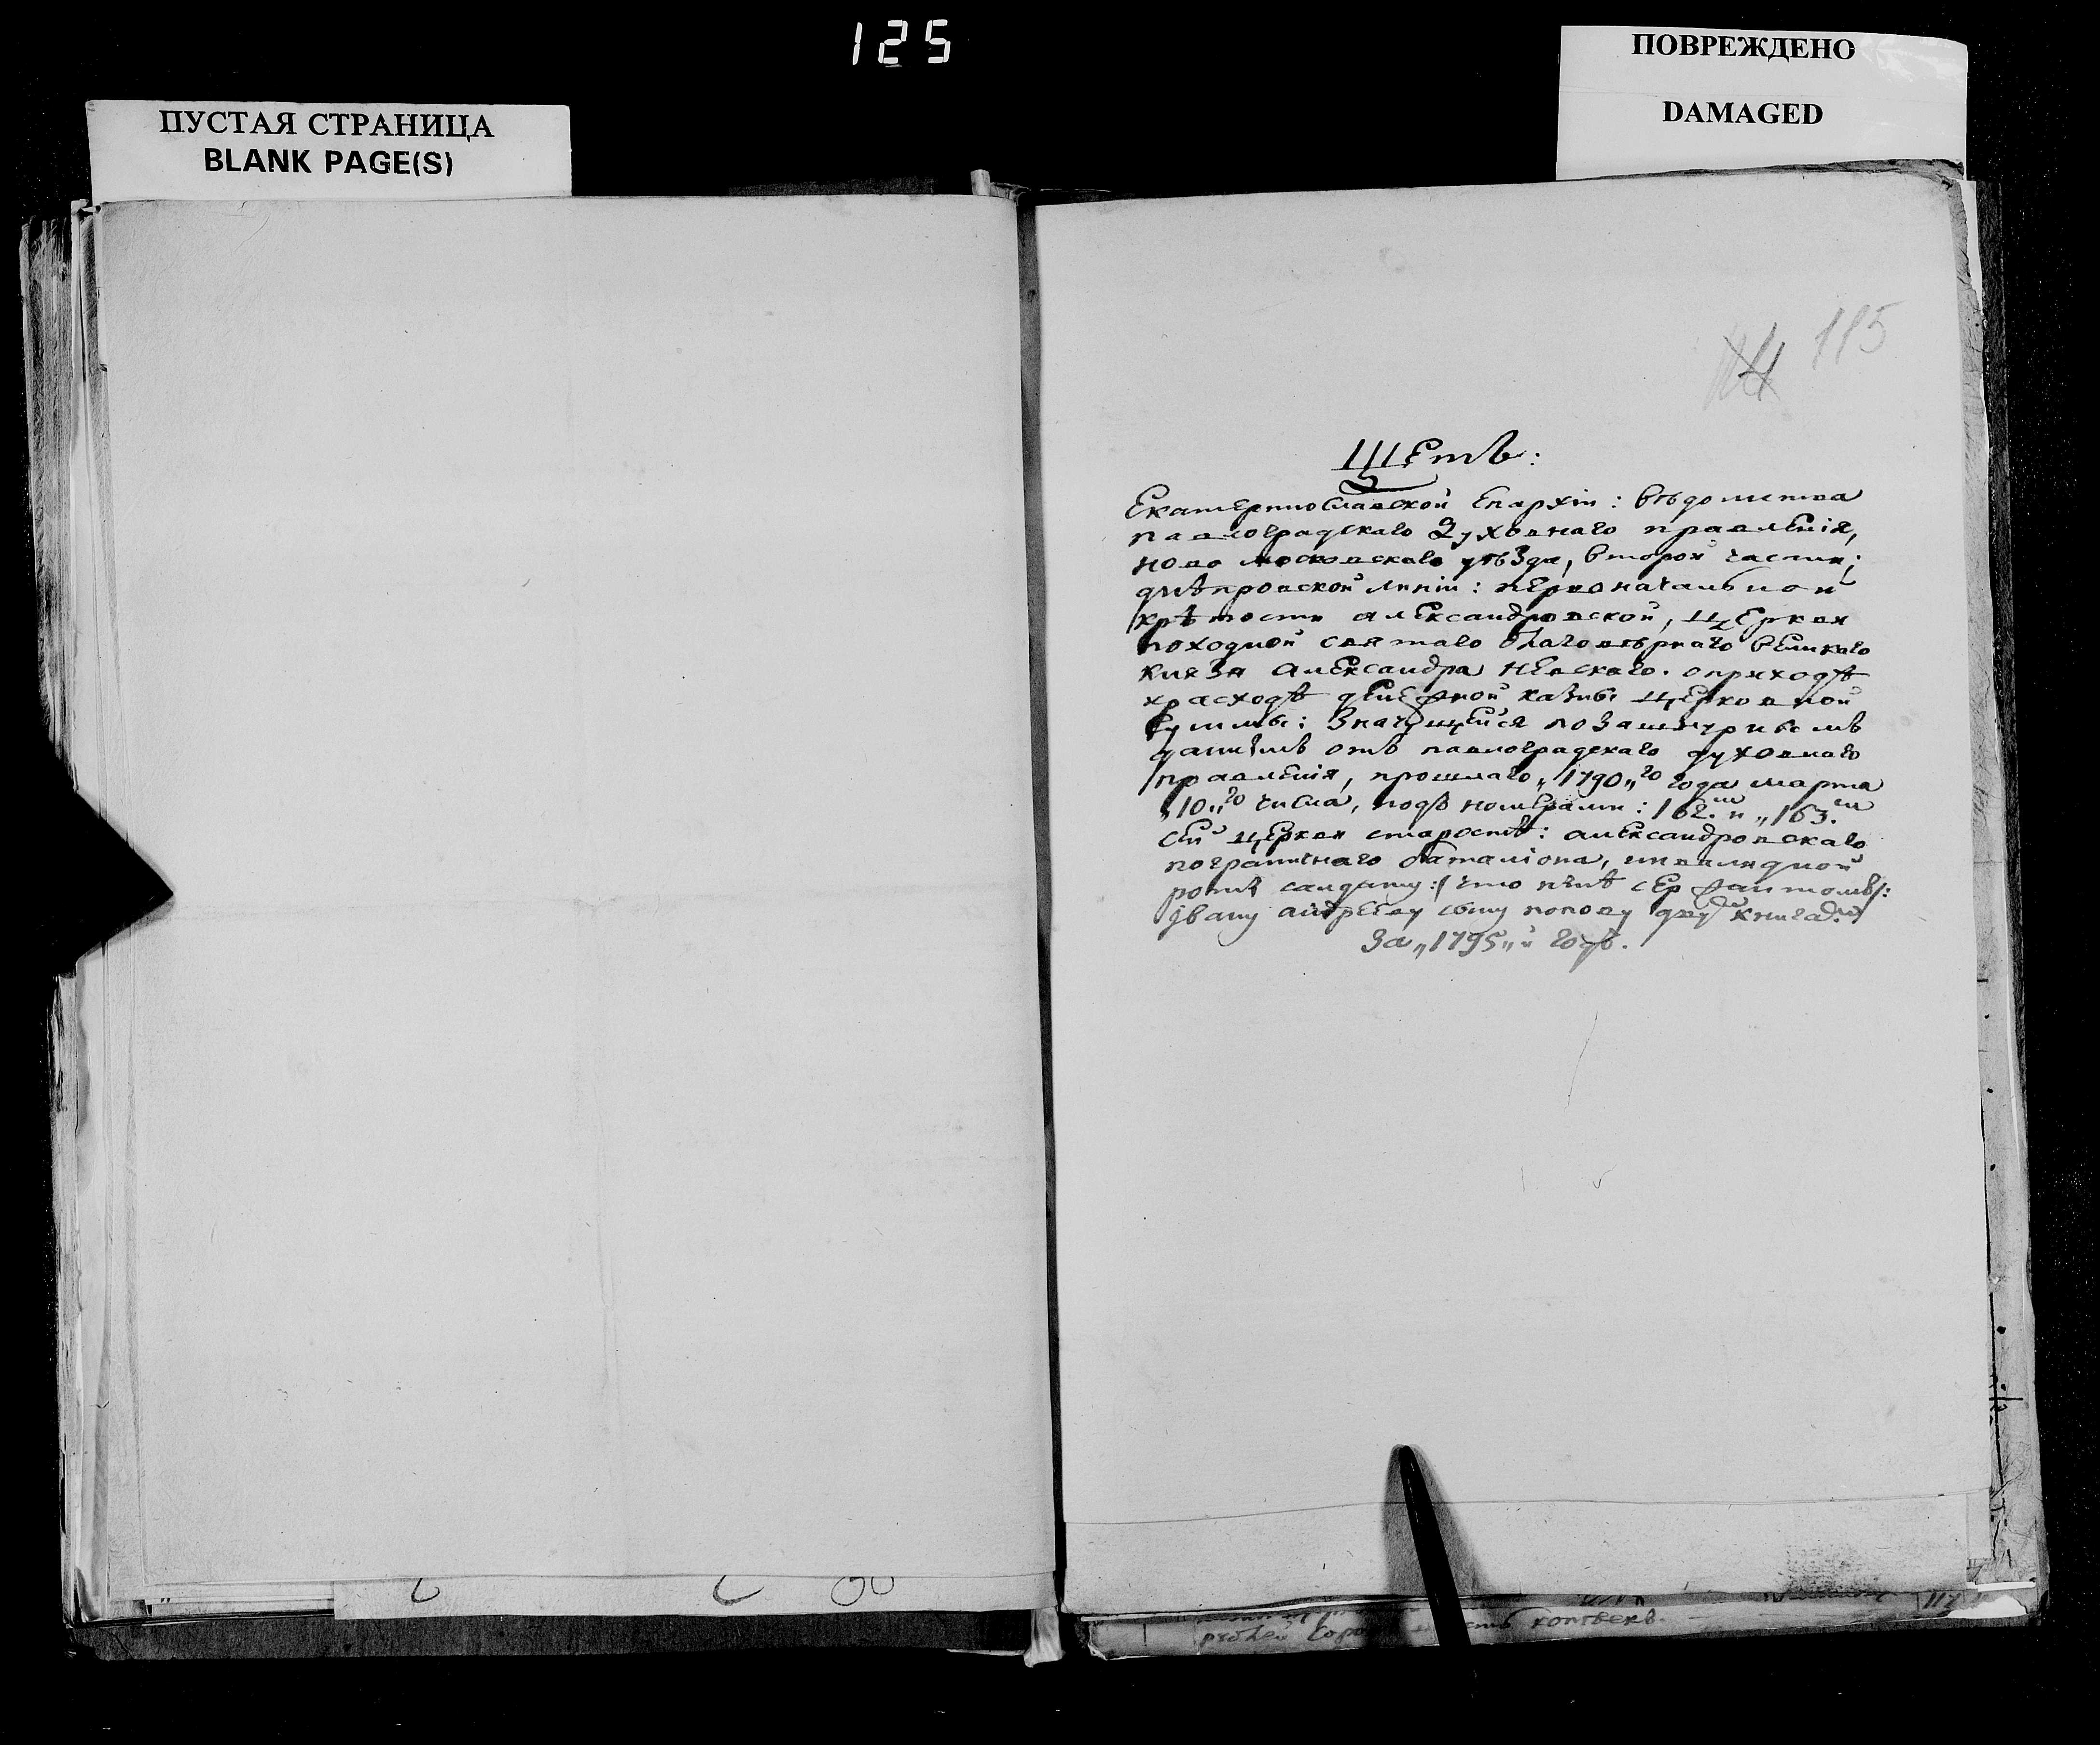 125
ПУСТАЯ СТРАНИЦА
BLANK PAGE(S)
ПОВРЕЖДЕНО
DAMAGED
115
Щетъ:
Екатеринославской Епархіи: вѣдомства
павлоградскаго духовнаго правленія,
ново московскаго уѣзда, второй части;
днѣпровской линіи: первоначальной
крѣпости александровской, церкви
походной святаго благовѣрнаго великаго
князя александра невскаго. оприходѣ
храсходѣ денежной казны церковной
суммы: значущейся позашнурнымъ
даннымъ отъ павлоградскаго духовнаго
правленія, прошлаго „1790„го года марта
„10„го числа, подъ номерами: 162.м и „163.м
сей церкви старостѣ: александровскаго
пограничнаго баталіона, инвалидной
роты салдату:/ что нынѣ сержантомъ/:
їванy андрееву сыну попову двух книгах
За„1795„й годъ.
рублей копѣекъ.
117